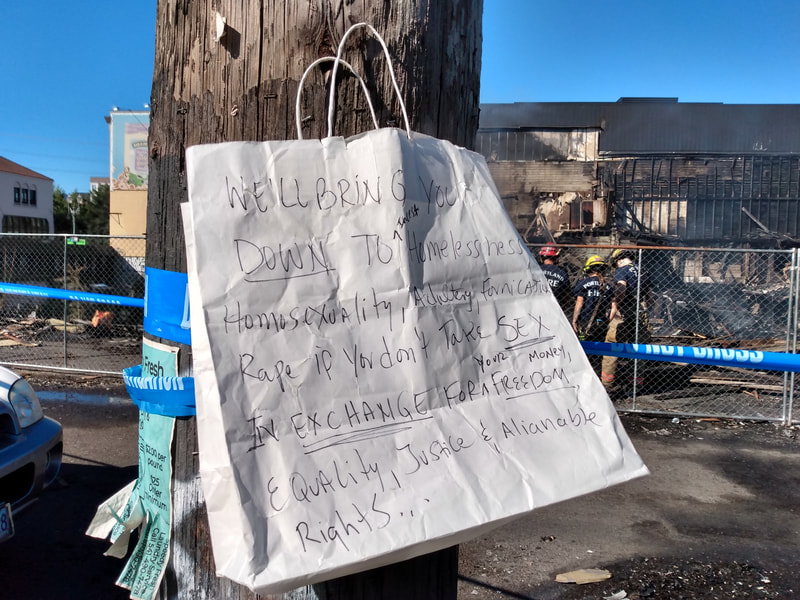 WE'LL BRING YOUR
DOWN TO Homelessness
Homosexuality, Adultry, Fornication
Rape if You don't Take SEX
Your MONEY,
IN EXCHANGE FOR FREEDOM,
EQUALITY, JUSTICE & Alianable
Rights...
Fresh
$2.00 per
pound
$25
minimum
NOT CROSS
PORTLAND
FIRE